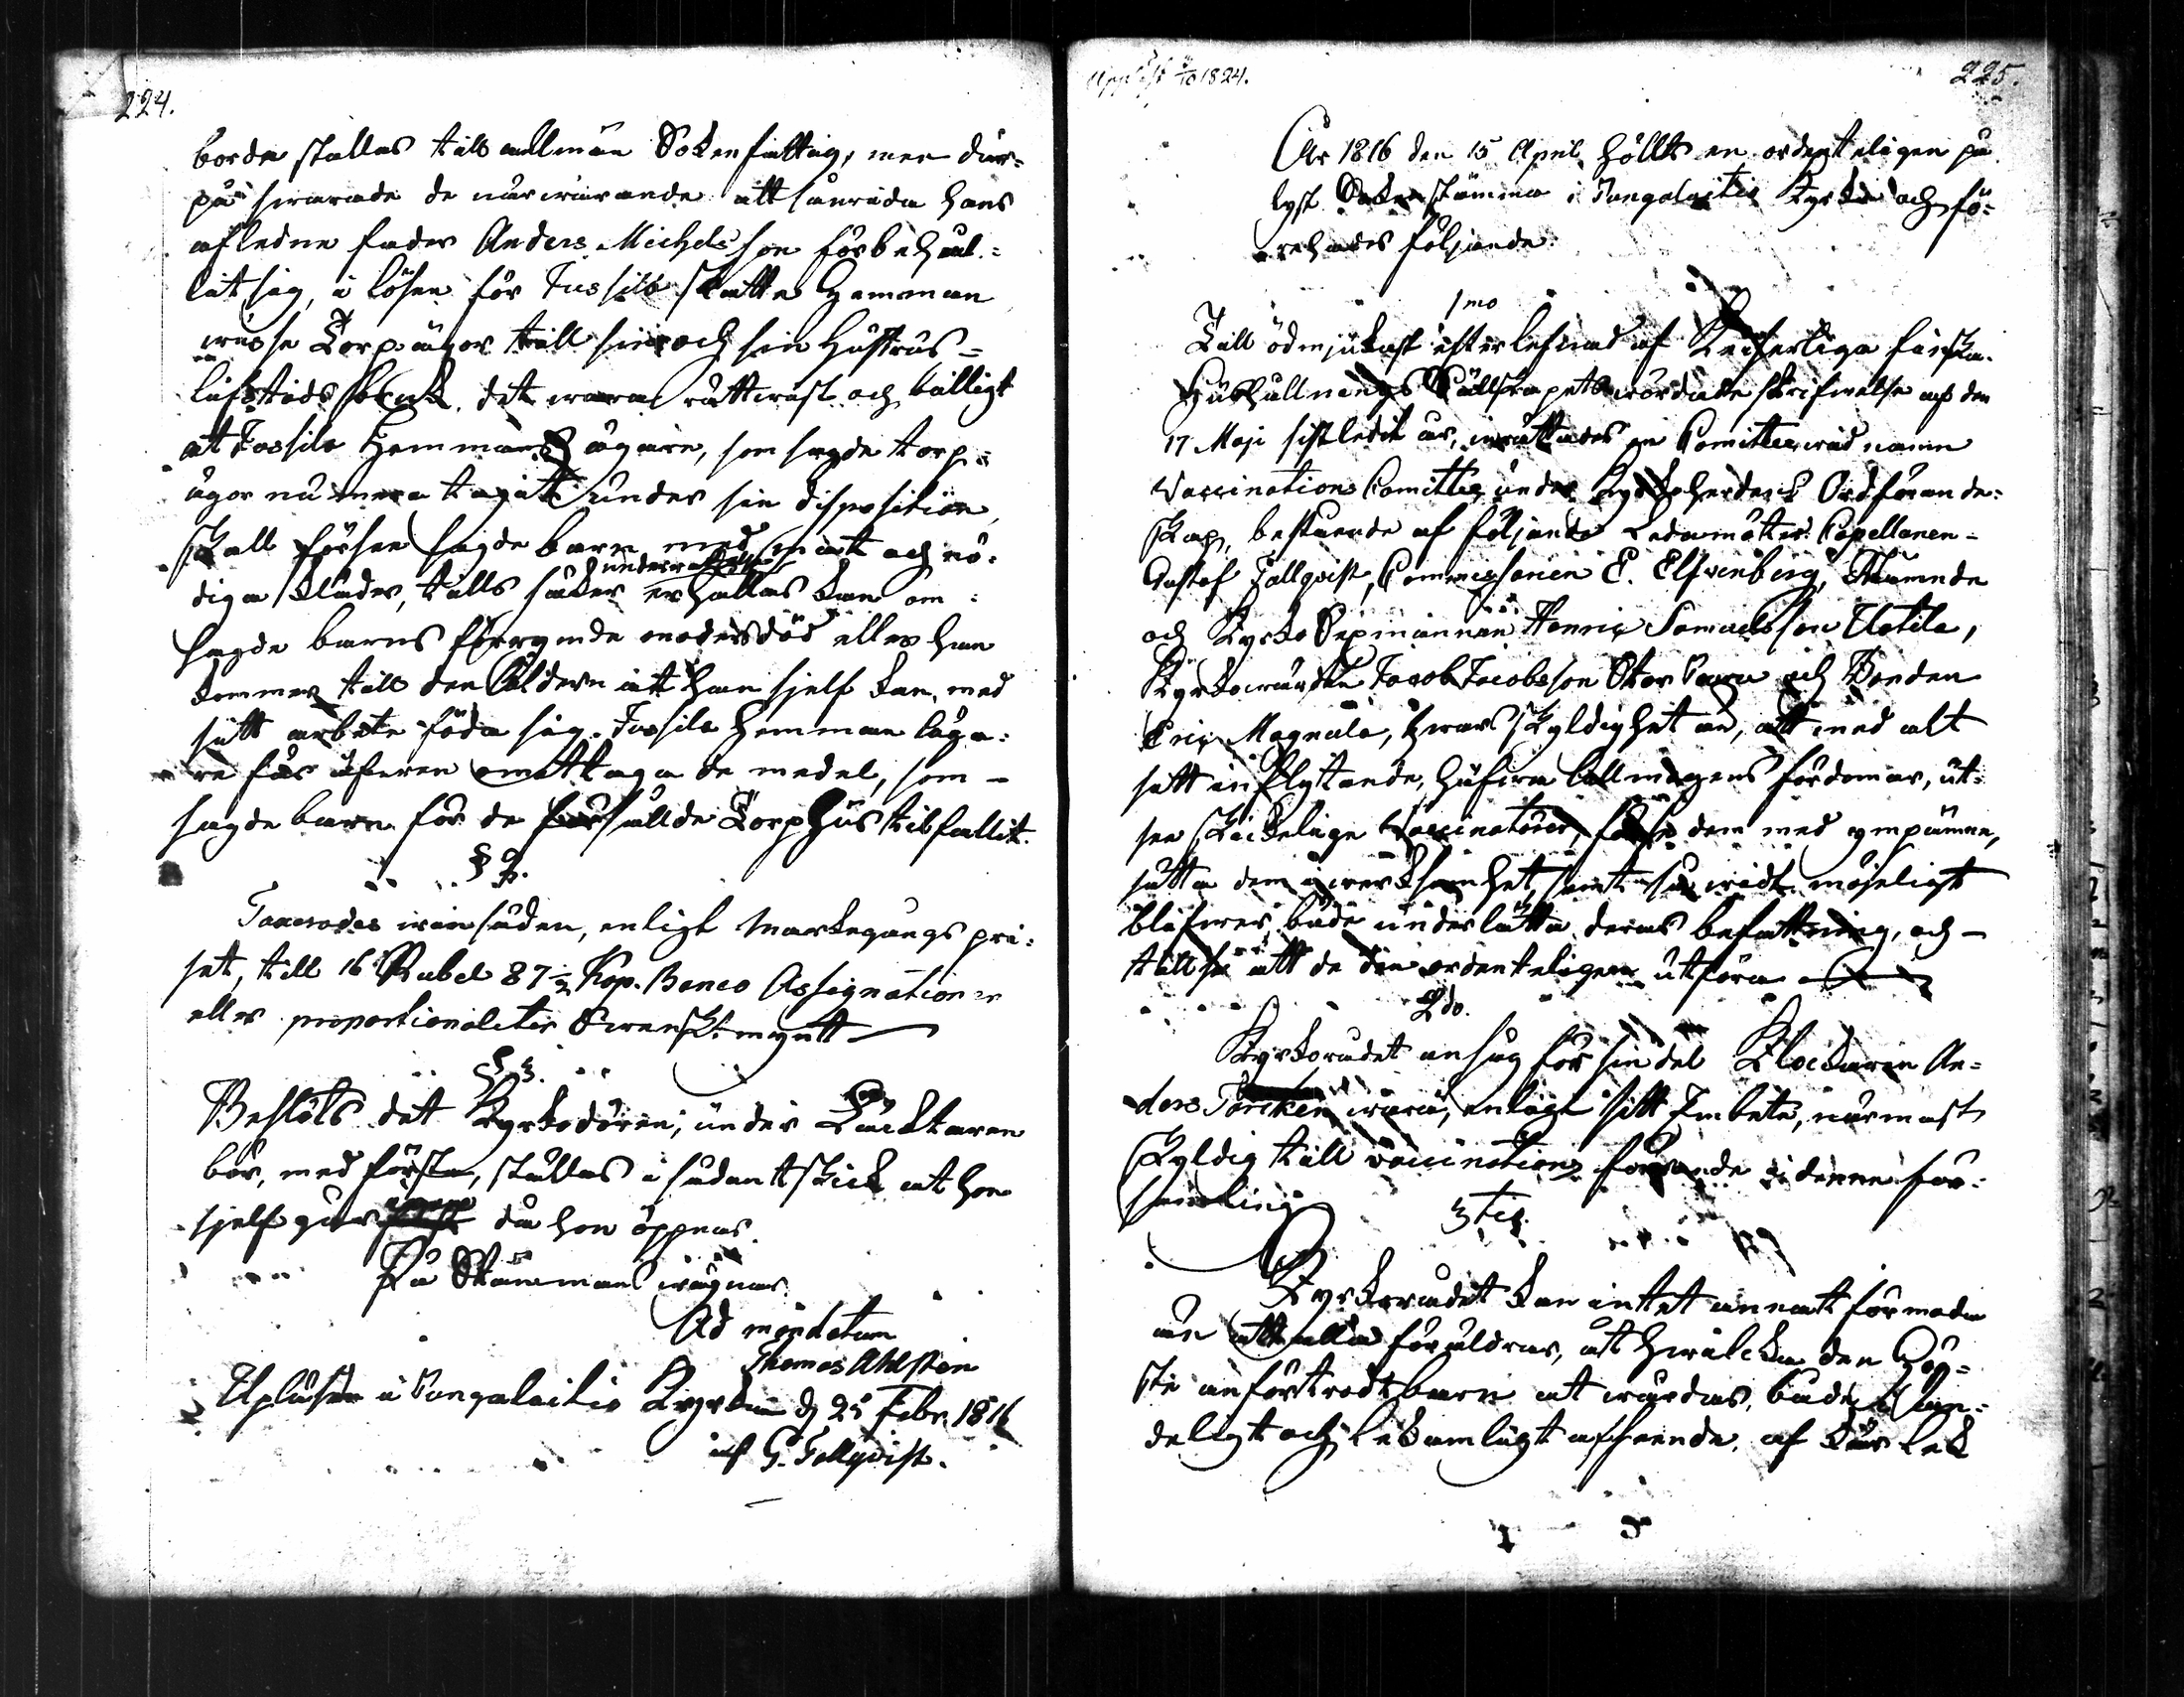 224.
borde ställas till allmän Sokenfattig, men där-
på swarade de närwarande att sawida hans
afledne fader Anders Michelsson förbehål-
lit sig, i lösen för Jussila Skatte Hemman
wisse Torp ägor till sin och sin Hustrus
lifstids bruk, det wara rättwist och billigt
at Jussila Hemmans ägare, som sagde torp
ägor nu mera tagit under sin disposition,
skall förse sagde barn med mat och nö-
diga kläder, tills säker underrättelse erhållas kan om
sagde barns förrymde moders död eller han
kommer till den åldern att han sjelf kan med
sitt arbete föda sig. Jussila Hemman äga-
re får äfwen emottaga de medel, som
sagde barn för de försållde Torphus tilfallit.
§ 2.
Taxerades winsäden, enligt Markegangs pri-
set, till 16 Rubel 87½ Kop. Banco Assignationer
eller proportionaliter Swenskt mynt
§ 3.
Beslöts det Kyrkodören, under Läcktaren
bör, med första, ställas i sådant skick at hon
sjelf går da hon öppnas.
På Stämmans wägnar
Ad mandatum
Thomas Ahlsten
Upläsen i Pungalaitio Kyrka d 25 Febr. 1816
af G. Fallqvist.
Uppläst 1824.
225.
År 1816 den 15 April hölts en ordenteligen på
lyst Sokenstämma i Pungalaitio Kyrka och fö-
rehades följande
1mo
Till ödmjukast efterlefnad af Keiserliga finska
Hushållnings Sällskapets wördade skrifwelse af den
17 Maji sistledit år, inrättades en Comittee wid namn
Vaccinations Comittee under Kyrkoherdens Ordförande-
skap, bestående af följande Ledamöter Capellanen
Gustaf Fallqvist, Commissarien E. Elfvenberg, Nämnde
och Kyrko Sexmannen Henric Samuelsson Uotila,
Kyrkowärden Jacob Jacobsson och Bonden
Eric Magnula, hwars skyldighet är, att med alt
sitt inflytande, häfwa allmogens fördomar, ut-
se skickelige Vaccinatörer, förse dem med ympämne,
sätta dem i werksamhet, samt så widt möjeligt
blifwer både underlätta deras befattning, och
tillse att de den ordenteligen utföra
2do.
Kyrkorådet ansåg för sin del Klockaren An-
ders Törcken wara, enligt sitt Embete, närmast
skyldig till vaccinations förande i denne för-
samling
3tio.
Kyrkorådet kan intet annat förmoda
än att alla föräldrar, åt hwilcka den Hög-
ste anförtrodt barn at wårdas, både i an-
deligt och lekamligt afseende, af kärlek